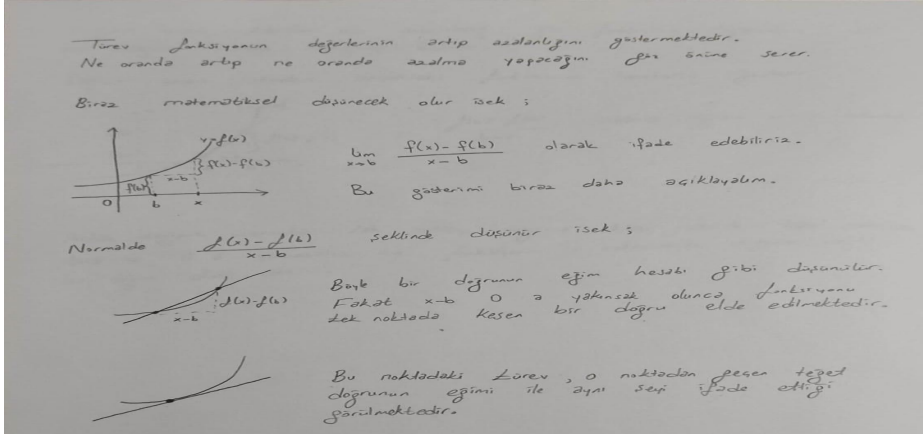 Türev fonksiyonun değerlerinin artıp azalanlığını göstermektedir.
Ne oranda artıp ne oranda azalma yapacağını göz önüne serer.
Biraz matematiksel düşünecek olur isek ;
y=f(x)
f(x)-f(b)
x-b
f(b)
0 b x
lim x→b f(x)-f(b) / x-b olarak ifade edebiliriz.
Bu gösterimi biraz daha açıklayalım.
Normalde f(x)-f(b) / x-b şeklinde düşünür isek ;
f(x)-f(b)
x-b
Böyle bir doğrunun eğim hesabı gibi düşünülür.
Fakat x-b 0 a yakınsak olunca fonksiyonu
tek noktada kesen bir doğru elde edilmektedir.
Bu noktadaki türev, o noktadan geçen teğet
doğrunun eğimi ile aynı şeyi ifade ettiği
görülmektedir.